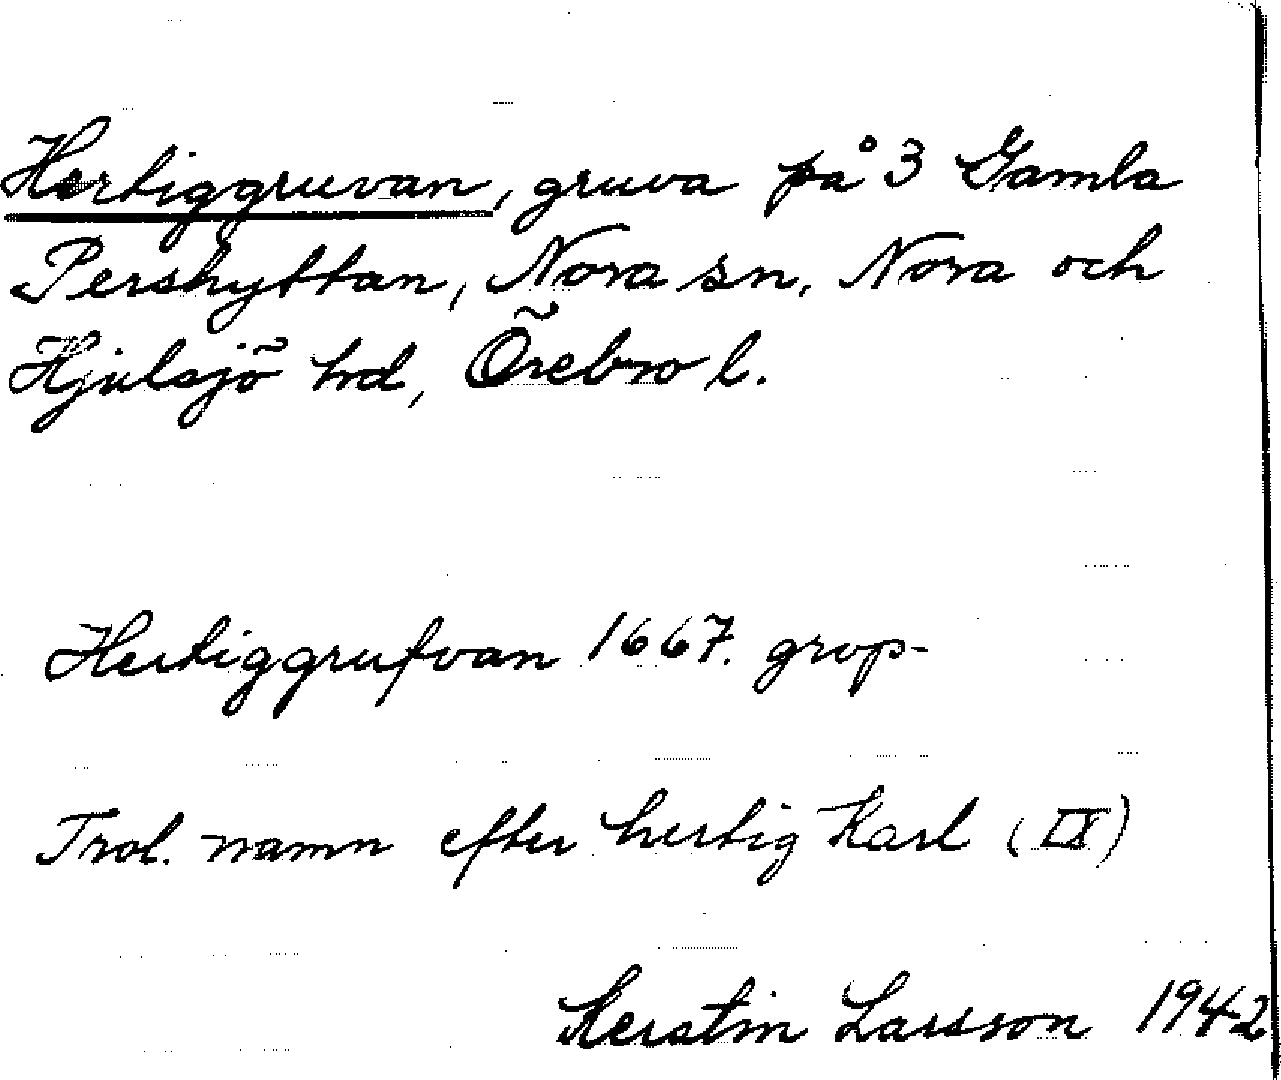 Hertiggruvan, gruva på 3 Gamla
Pershyttan, Nora sn, Nora och
Hjulsjö hrd, Örebro l.
Hertiggrufvan 1667. grvp-
Trol. namn efter hertig Karl (IX)
Kerstin Larsson 1942